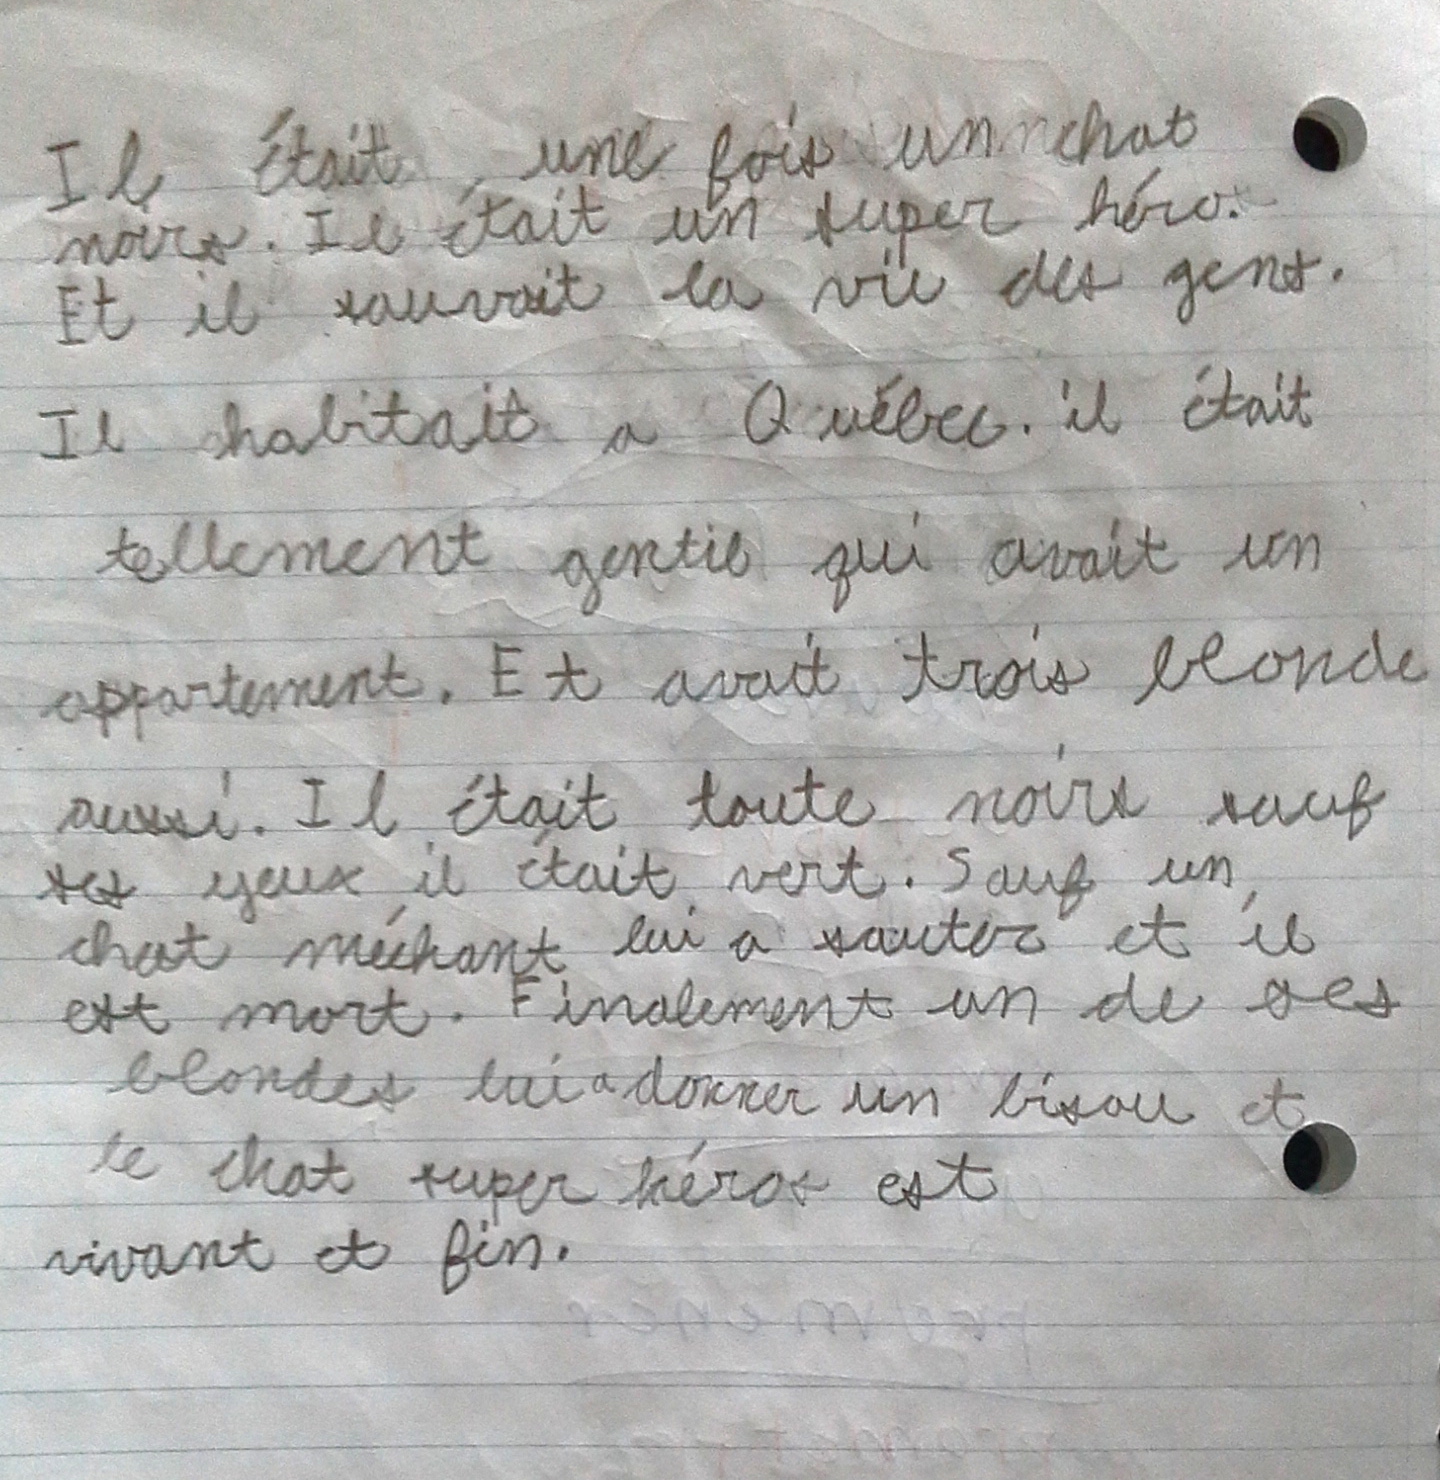 Il était une fois un chat
noirs. Il était un super héro.
Et il sauvait la vie des gens.
Il habitait a Québec. il était
tellement gentil qui avait un
appartement. Et avait trois blonde
aussi. Il était toute noirs sauf
ses yeux il était vert. Sauf un
chat méchant lui a sauter et il
est mort. Finalement un de ses
blondes lui a donner un bisou et
le chat super héros est
vivant et fin.